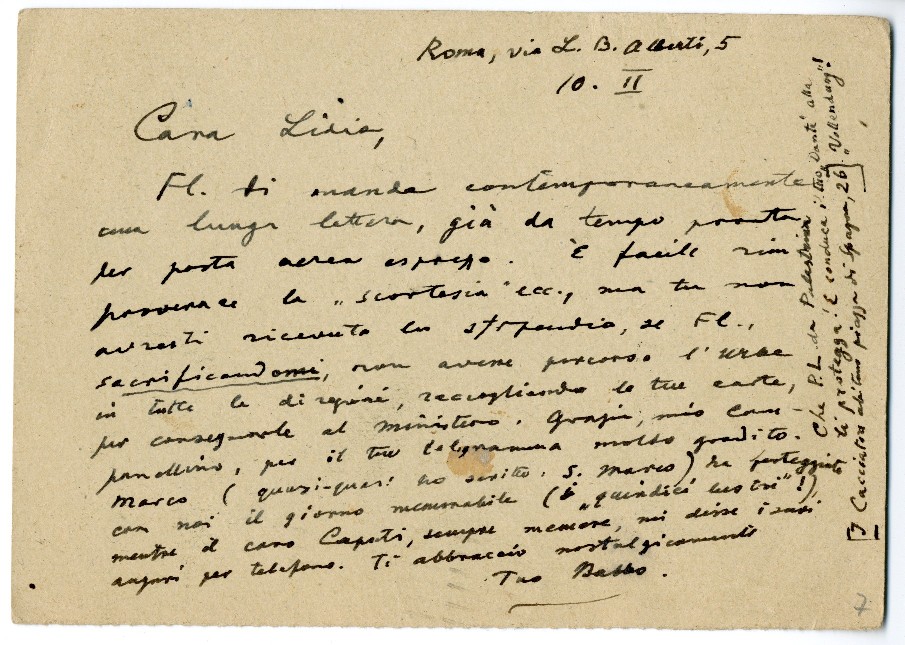 Roma, via L. B. Alberti, 5
10. II
Cara Lidia,
Fl. ti manda contemporaneamente
una lunga lettera, già da tempo pronta
per posta aerea espresso. È facile rim
proverare la „scortesia" ecc., ma tu non
avresti ricevuto lo stipendio, se Fl.,
sacrificandomi, non avesse percorso l'Urbe
in tutte le direzioni, raccogliendo le tue carte,
per consegnarle al Ministero. Grazie, mio Cam-
panellino, per il tuo telegramma molto gradito.
Marco (quasi-quasi ho scritto: S. Marco) ha festeggiato
con noi il giorno memorabile (i „quindici lustri"!),
mentre il caro Caputi, sempre memore, mi disse i suoi
auguri per telefono. Ti abbraccio nostalgicamente
Tuo Babbo.
Che P.L. da Palestrina
ti protegga! E conduca il tuo „Dante" alla
„Vollendung"!
[I Cacciatori abitano piazza di Spagna, 26]
7